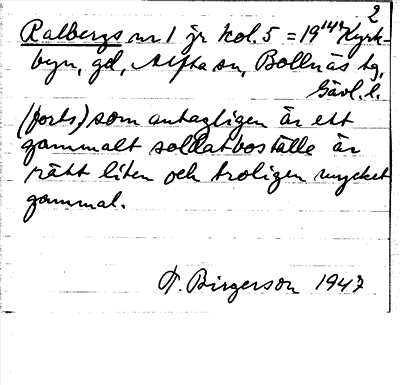 2
Ralbergs nr 1 jr kol. 5 = 19¹⁴¹ Kyrk-
byn, gd, Alfta sn, Bollnäs tg,
Gävl. l.
(forts.) som antagligen är ett
gammalt soldatboställe är
rätt liten och troligen mycket
gammal.
F. Birgerson 1947